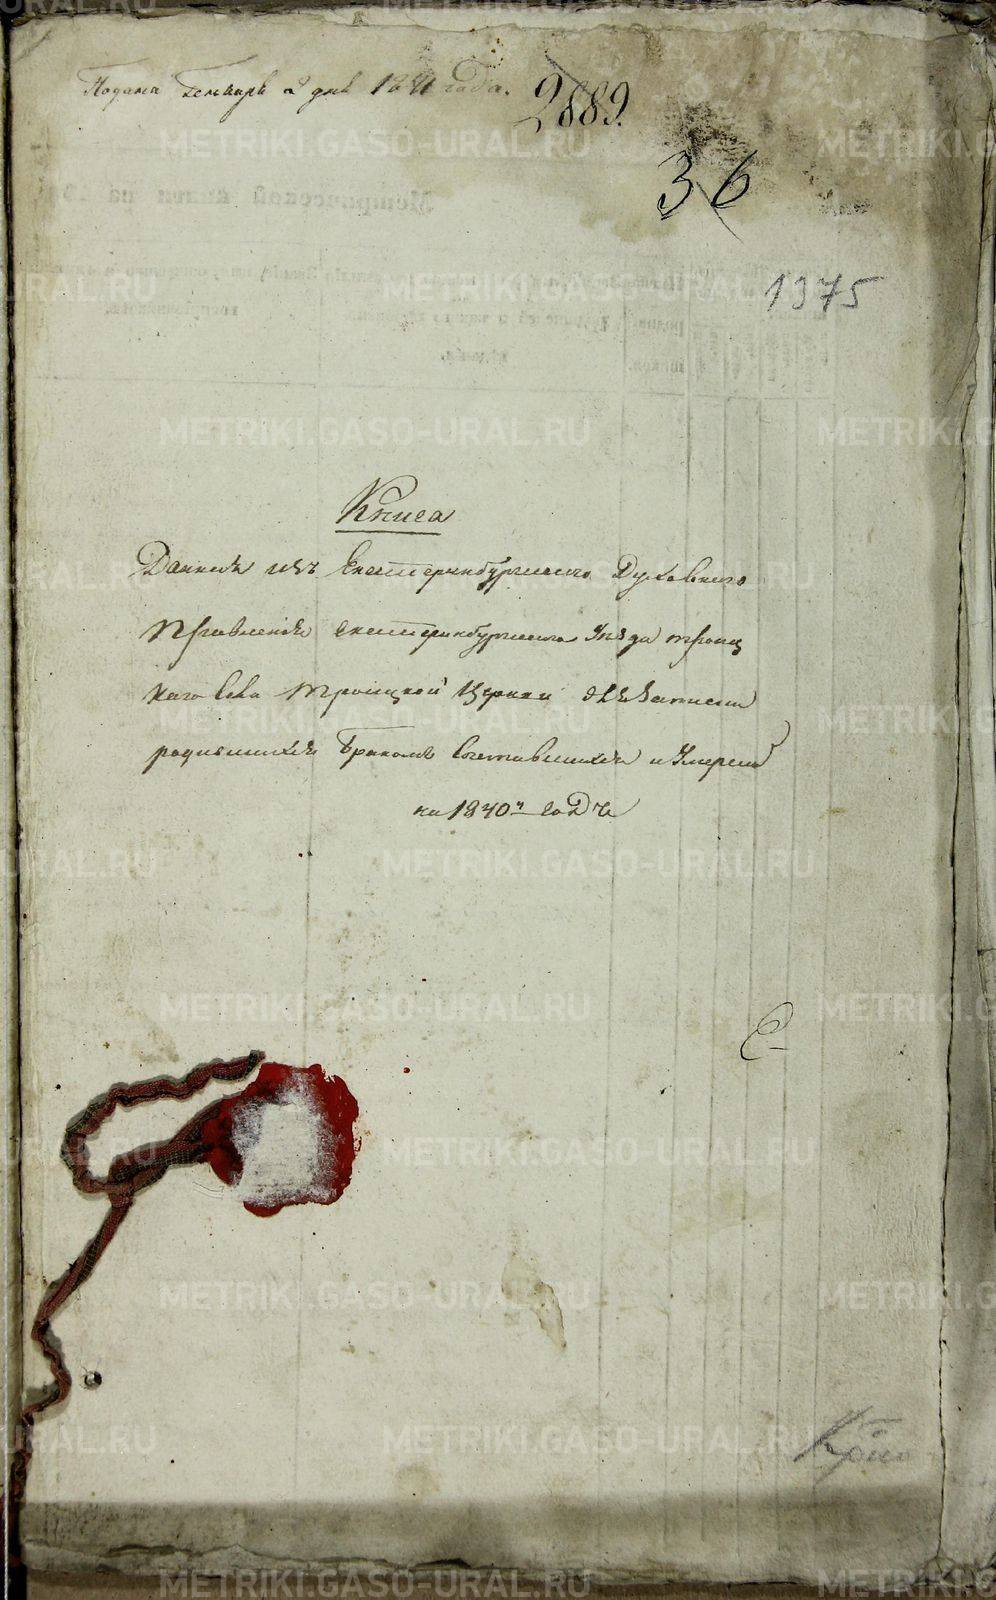 Подана Генваря 2 дня 1841 года.
2889.
36
1375
Книга
Данная изъ Екатеринбургскаго Духовнаго
Правленія Екатеринбургскаго Уезда троиц
каго Села троицкой Церкви для записи
родившихся Бракомъ Сочетавшихся и Умерш
на 1840й годъ
METRIKI.GASO-URAL.RU